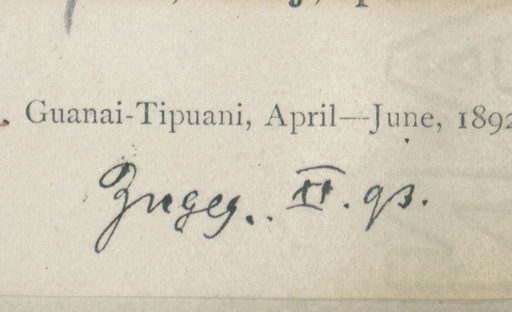 Guanai-Tipuani, April—June, 1892
Zugeg.. II. 93.